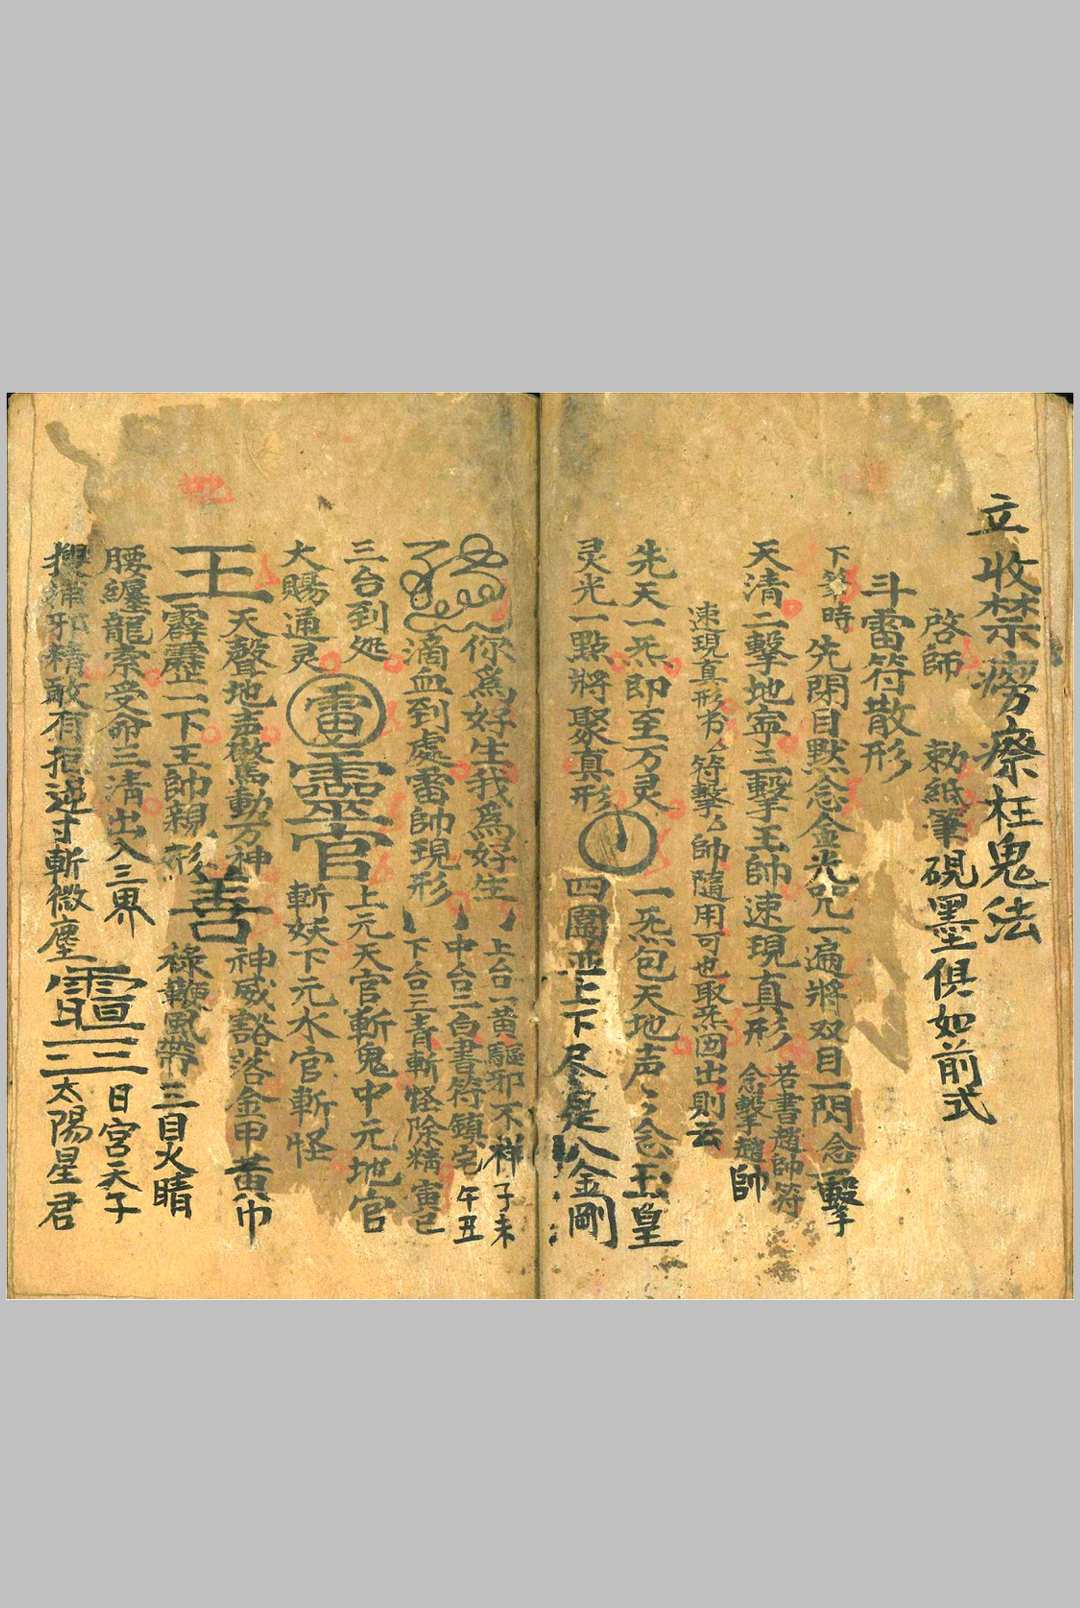 立收禁癆瘵枉鬼法
啓師 勅紙筆硯墨俱如前式
斗雷符散形
下筆時 先閉目默念金光咒一遍將双目一閃念一擊
天清二擊地寧三擊王帥速現真形 若書趙帥符念擊趙帥
速現真形 符擊 帥隨用可也取炁囬出則云
先天一炁即至万灵 一炁包天地声〻念玉皇
灵光一點將聚真形 四圍並上下尽是八金剛
你為好生我為好生 上台一黃驅邪不祥 子未
中台二白書符鎮宅 午丑
了 滴血到處雷帥現形 下台三青斬怪除精 寅巳
三台到処 上元天官斬鬼中元地官
大賜通灵 雷 靈官 斬妖下元水官斬怪
天聲地声驚動万神 神威豁落金甲黃巾
王 霹靂一下王帥親形 善 祿 風帶三目火睛
腰纏龍索受命三清出入三界 日宮天子
搜捕邪精敢有拒逆寸斬微塵 太陽星君